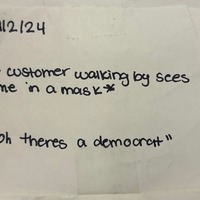 1/2/24
customer walking by sees
me in a mask*
oh theres a democratt"